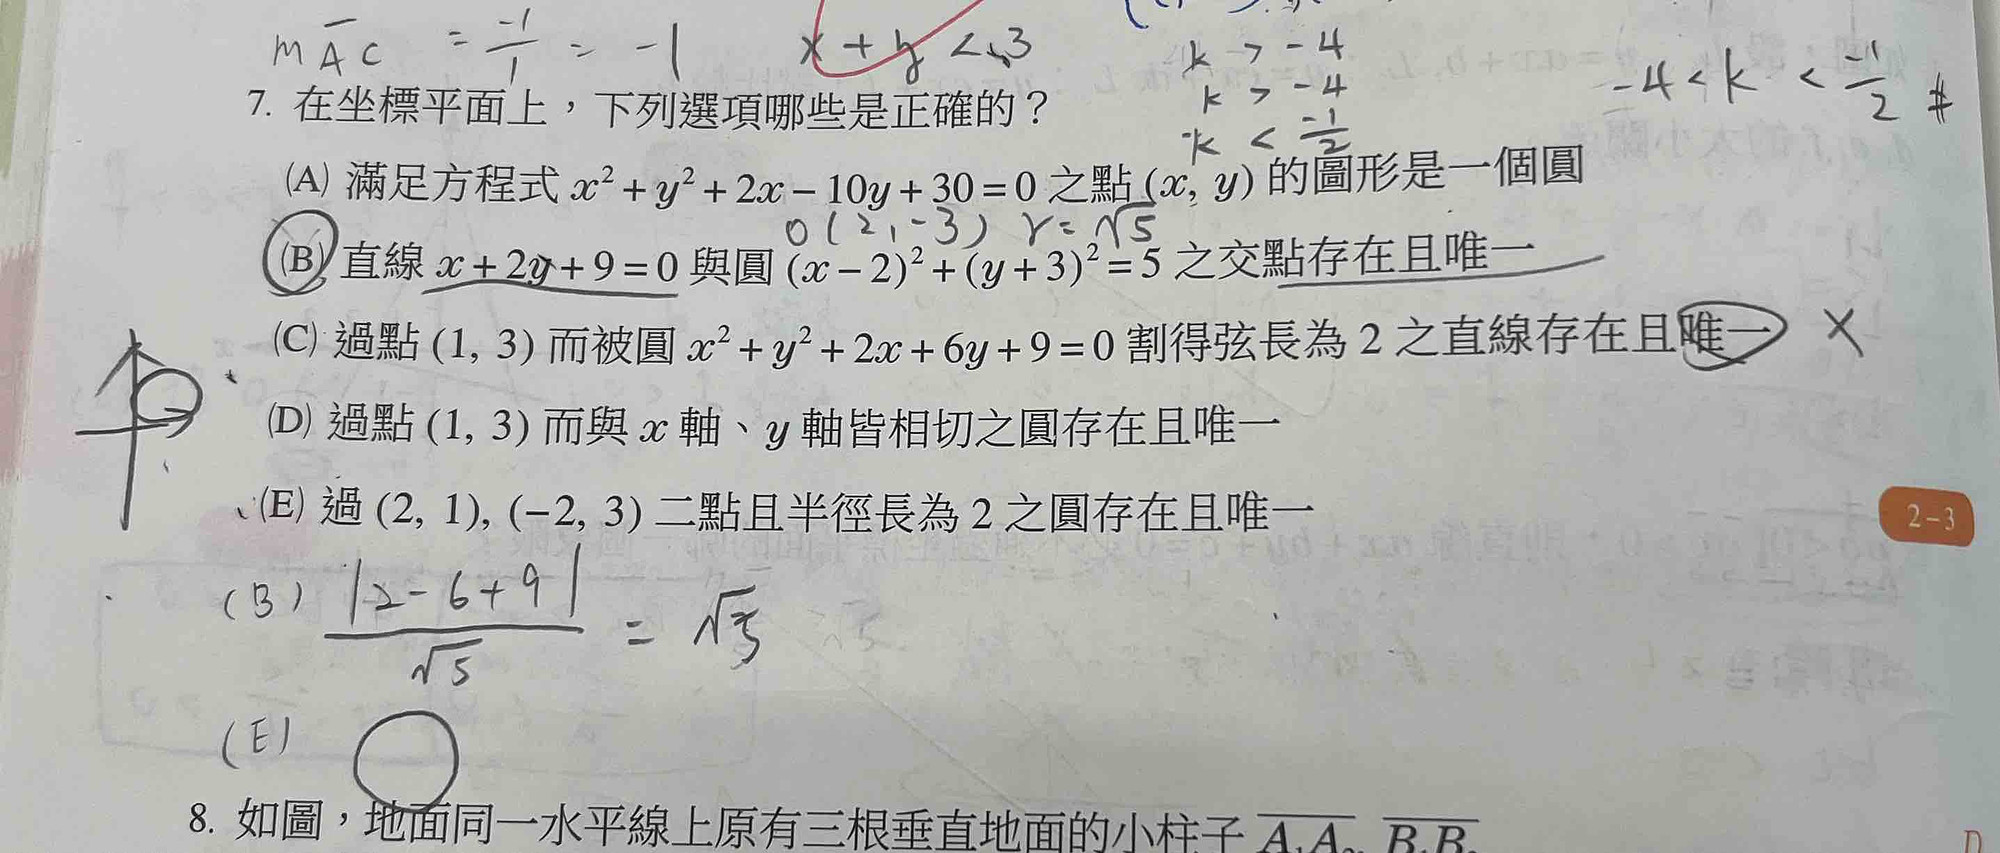 m A̅C̅ = -1/1 = -1
x + y < 3
k > -4
k > -4
k < -1/2
-4 < k < -1/2 #
7. 在坐標平面上，下列選項哪些是正確的？
(A) 滿足方程式 x² + y² + 2x − 10y + 30 = 0 之點 (x, y) 的圖形是一個圓
O(2, -3) r = √5
(B) 直線 x + 2y + 9 = 0 與圓 (x − 2)² + (y + 3)² = 5 之交點存在且唯一
(C) 過點 (1, 3) 而被圓 x² + y² + 2x + 6y + 9 = 0 割得弦長為 2 之直線存在且唯一 X
(D) 過點 (1, 3) 而與 x 軸、y 軸皆相切之圓存在且唯一
(E) 過 (2, 1), (−2, 3) 二點且半徑長為 2 之圓存在且唯一
2-3
(B) |2-6+9| / √5 = √5
(E)
8. 如圖，地面同一水平線上原有三根垂直地面的小柱子